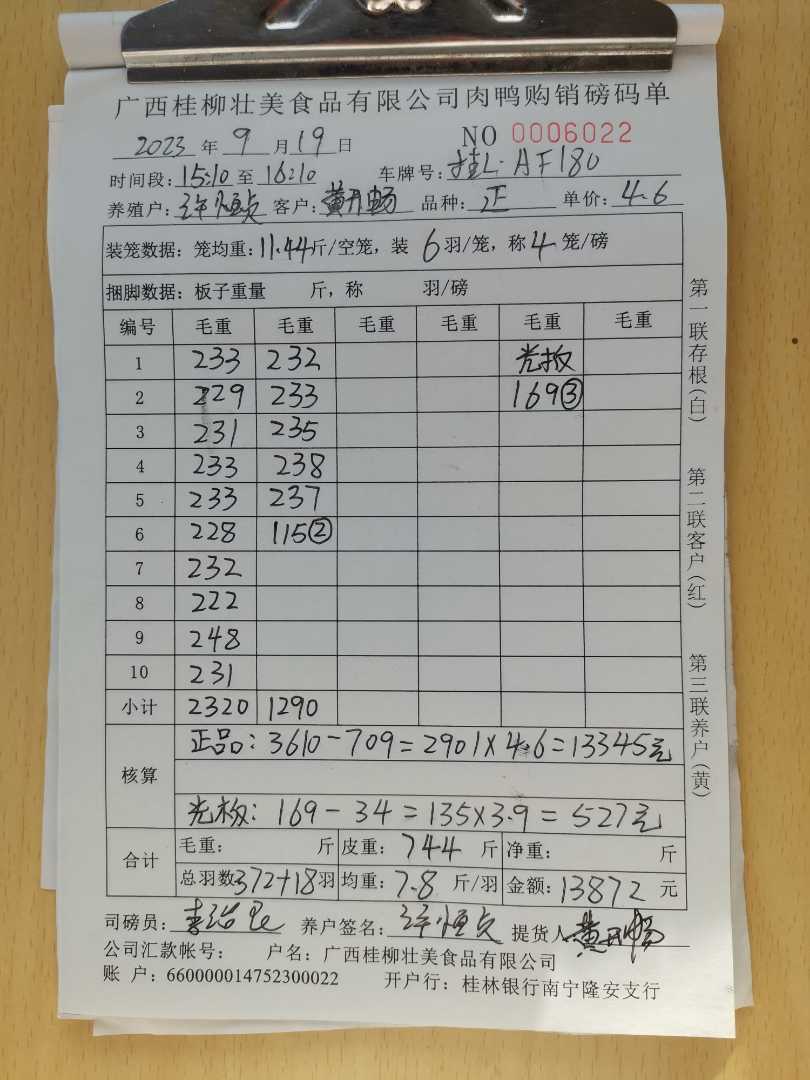 广西桂柳壮美食品有限公司肉鸭购销磅码单
2023 年 9 月 19 日 NO 0006022
时间段: 15:10 至 16:10 车牌号: 桂L·AF180
养殖户: 许恒贞 客户: 黄开畅 品种: 正 单价: 4.6
装笼数据: 笼均重: 11.44 斤/空笼, 装 6 羽/笼, 称 4 笼/磅
捆脚数据: 板子重量 斤, 称 羽/磅
编号 毛重 毛重 毛重 毛重 毛重 毛重
1 233 232 光板
2 229 233 169③
3 231 235
4 233 238
5 233 237
6 228 115②
7 232
8 222
9 248
10 231
小计 2320 1290
核算
正品: 3610-709=2901×4.6=13345元
光板: 169-34=135×3.9=527元
合计
毛重: 斤 皮重: 744 斤 净重: 斤
总羽数 372+18 羽 均重: 7.8 斤/羽 金额: 13872 元
司磅员: 养户签名: 许恒贞 提货人 黄开畅
公司汇款帐号: 户名: 广西桂柳壮美食品有限公司
账 户: 660000014752300022 开户行: 桂林银行南宁隆安支行
第一联存根(白)
第二联客户(红)
第三联养户(黄)